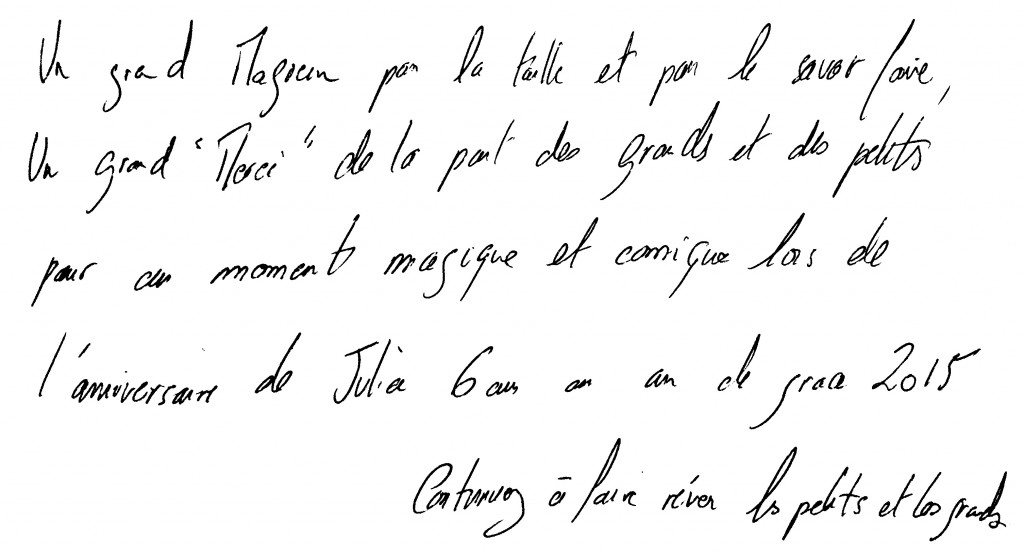 Un grand Magicien par la taille et par le savoir faire,
Un grand "Merci" de la part des grands et des petits
pour un moment magique et comique lors de
l'anniversaire de Julia 6 ans en an de grace 2015
Continuez à faire rêver les petits et les grands